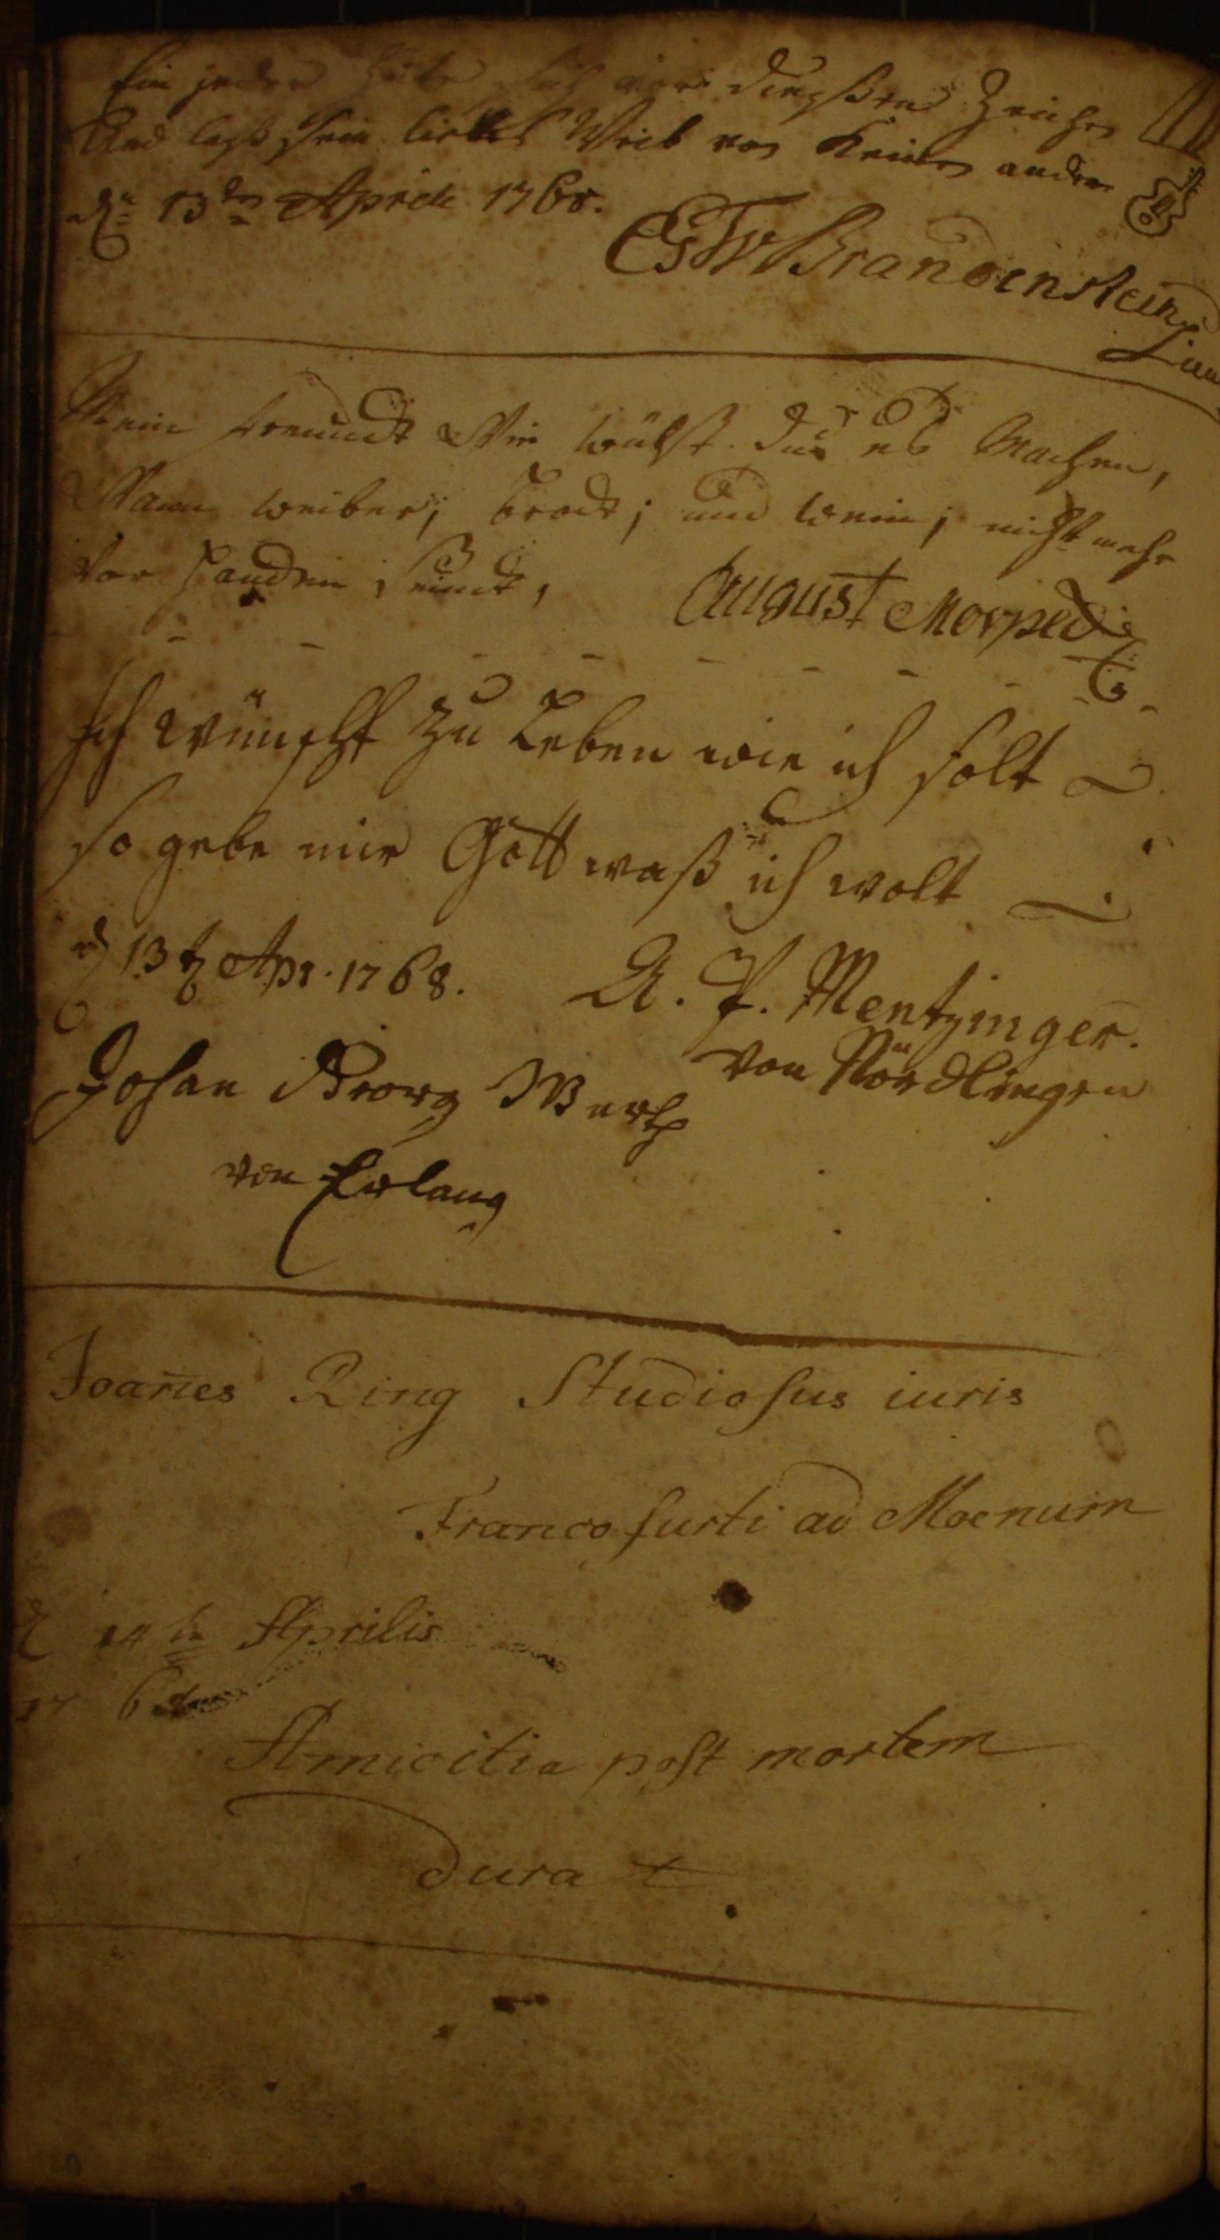 Ein jeder hüte sich vor dießen Zeichen
Und laß sein liebes Weib von keinen andern
dn 13ten Aprill 1768.
Brandenstein
Mein freundt Wie wülst du es Machen,
Wann weiber, brodt, und wein, nicht mehr
vor handen seindt,
August
Ich wünscht zu Leben wie ich solt
so gebe mir Gott waß ich wolt
d 13t Apr. 1768.
A. P. Mentzinger.
von Nördlingen
Johan Georg
von Erlang
Joan̄es Ring Studiosus iuris
Francofurti ad Moenum
d 14te Aprilis
17 68
Amicitia post mortem
durat